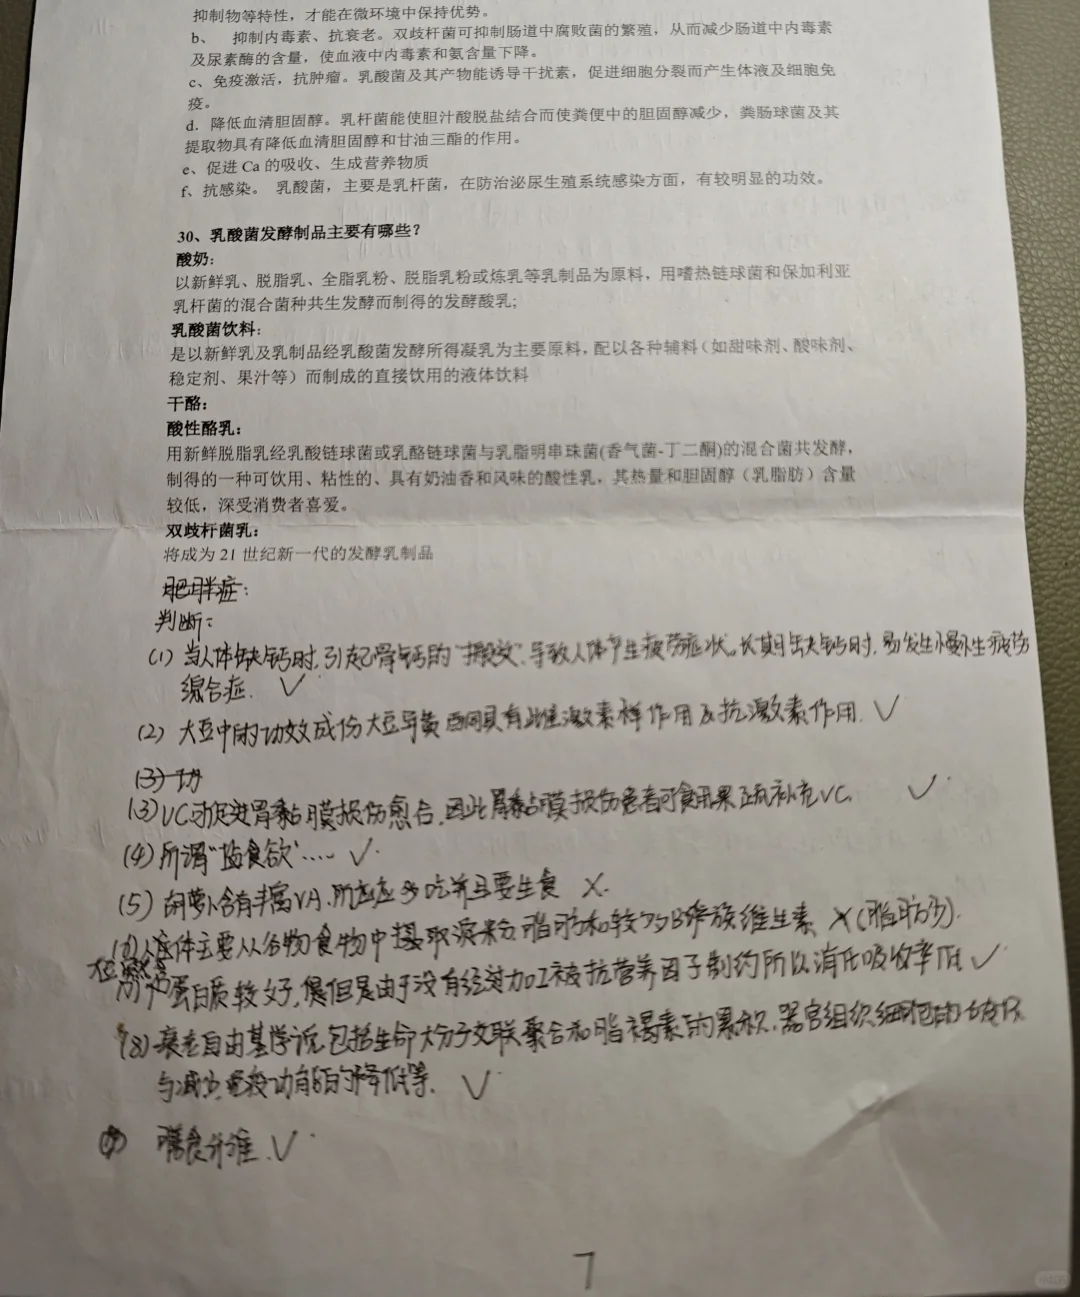 抑制物等特性，才能在微环境中保持优势。
b、 抑制内毒素、抗衰老。双歧杆菌可抑制肠道中腐败菌的繁殖，从而减少肠道中内毒素
及尿素酶的含量，使血液中内毒素和氨含量下降。
c、免疫激活，抗肿瘤。乳酸菌及其产物能诱导干扰素，促进细胞分裂而产生体液及细胞免
疫。
d．降低血清胆固醇。乳杆菌能使胆汁酸脱盐结合而使粪便中的胆固醇减少，粪肠球菌及其
提取物具有降低血清胆固醇和甘油三酯的作用。
e、促进 Ca 的吸收、生成营养物质
f、抗感染。 乳酸菌，主要是乳杆菌，在防治泌尿生殖系统感染方面，有较明显的功效。
30、乳酸菌发酵制品主要有哪些？
酸奶：
以新鲜乳、脱脂乳、全脂乳粉、脱脂乳粉或炼乳等乳制品为原料，用嗜热链球菌和保加利亚
乳杆菌的混合菌种共生发酵而制得的发酵酸乳;
乳酸菌饮料：
是以新鲜乳及乳制品经乳酸菌发酵所得凝乳为主要原料，配以各种辅料（如甜味剂、酸味剂、
稳定剂、果汁等）而制成的直接饮用的液体饮料
干酪：
酸性酪乳：
用新鲜脱脂乳经乳酸链球菌或乳酪链球菌与乳脂明串珠菌(香气菌-丁二酮)的混合菌共发酵，
制得的一种可饮用、粘性的、具有奶油香和风味的酸性乳，其热量和胆固醇（乳脂肪）含量
较低，深受消费者喜爱。
双歧杆菌乳：
将成为 21 世纪新一代的发酵乳制品
肥胖症：
判断：
(1) 当人体缺钙时，引起骨钙的“搬家”，导致人体产生疲劳症状。长期缺钙时，易发生慢性疲劳
综合症. ✓
(2) 大豆中的功效成份大豆异黄酮具有雌激素样作用及抗激素作用. ✓
(3) 切
(3) VC可促进胃黏膜损伤愈合，因此胃黏膜损伤患者可食用果蔬补充VC. ✓
(4) 所谓“益食欲”.... ✓
(5) 胡萝卜含有丰富VA，所应多吃并且要生食 ×.
人体主要从谷物食物中摄取淀粉脂肪和较多B族维生素 ×(脂肪少).
蛋白质较好，但是由于没有经过加工被抗营养因子制约所以消化吸收率低 ✓
(8) 衰老自由基学说包括生命大分子交联聚合和脂褐素的累积，器官组织细胞的
与减少免疫功能的降低等. ✓
膳食纤维. ✓
7
小红书